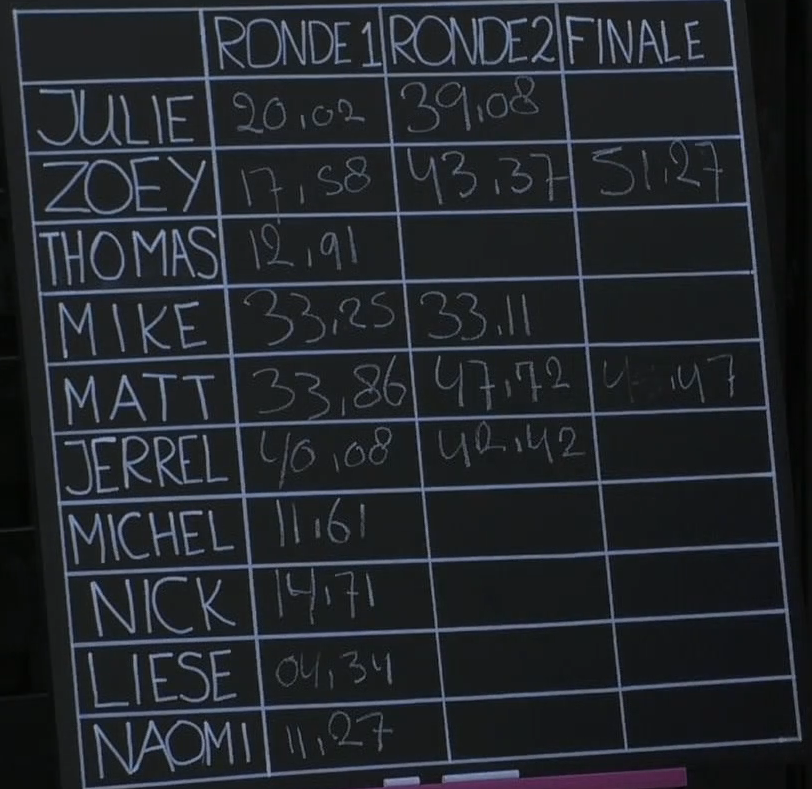 RONDE 1 RONDE 2 FINALE
JULIE 20,02 39,08
ZOEY 17,58 43,37 51,27
THOMAS 12,91
MIKE 33,25 33,11
MATT 33,86 47,72
JERREL 40,08 42,42
MICHEL 11,61
NICK 14,71
LIESE 04,34
NAOMI 11,27